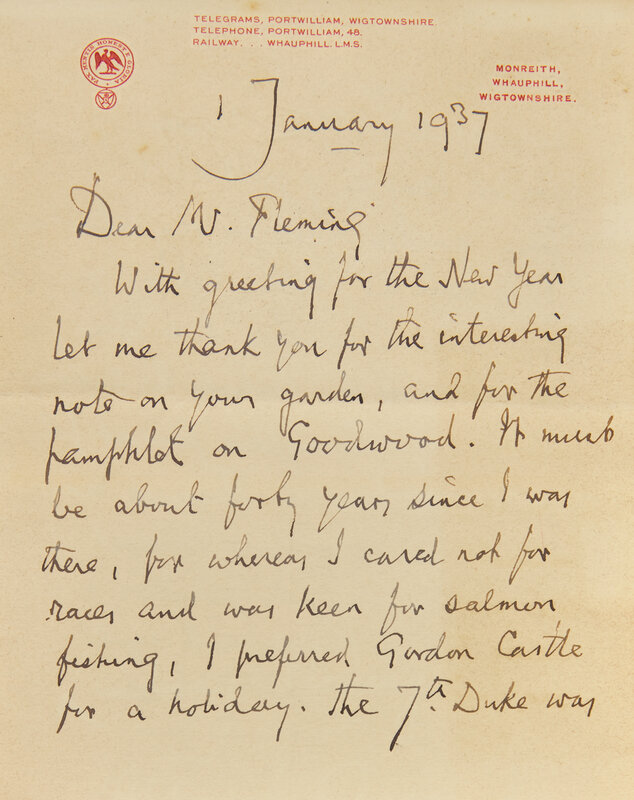 TELEGRAMS, PORTWILLIAM, WIGTOWNSHIRE.
TELEPHONE, PORTWILLIAM, 48.
RAILWAY, . . WHAUPHILL. L.M.S.
MONREITH,
WHAUPHILL,
WIGTOWNSHIRE.
1 January 1937
Dear Mr. Fleming
With greeting for the New Year
let me thank you for the interesting
note on your garden, and for the
pamphlet on Goodwood. It must
be about forty years since I was
there, for whereas I cared not for
races and was keen for salmon
fishing, I preferred Gordon Castle
for a holiday. The 7th Duke was